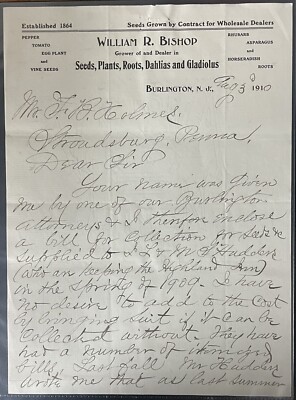 Established 1864
Seeds Grown by Contract for Wholesale Dealers
PEPPER
TOMATO
EGG PLANT
AND
VINE SEEDS
WILLIAM R. BISHOP
Grower of and Dealer in
Seeds, Plants, Roots, Dahlias and Gladiolus
RHUBARB
ASPARAGUS
AND
HORSERADISH
ROOTS
BURLINGTON, N. J., 1910
Mr. F. B. Holmes
Stroudsburg, Penna.
Dear Sir
Your name was given
me by one of our Burlington
attorneys & I therefore enclose
a bill for Collection for Seeds &c
supplied to
(who are keeping the Highland Inn)
in the Spring of 1909. I have
no desire to add to the Cost
by bringing suit if it can be
Collected without. They have
had a number of itemized
bills. Last fall Mr
wrote me that as last summer